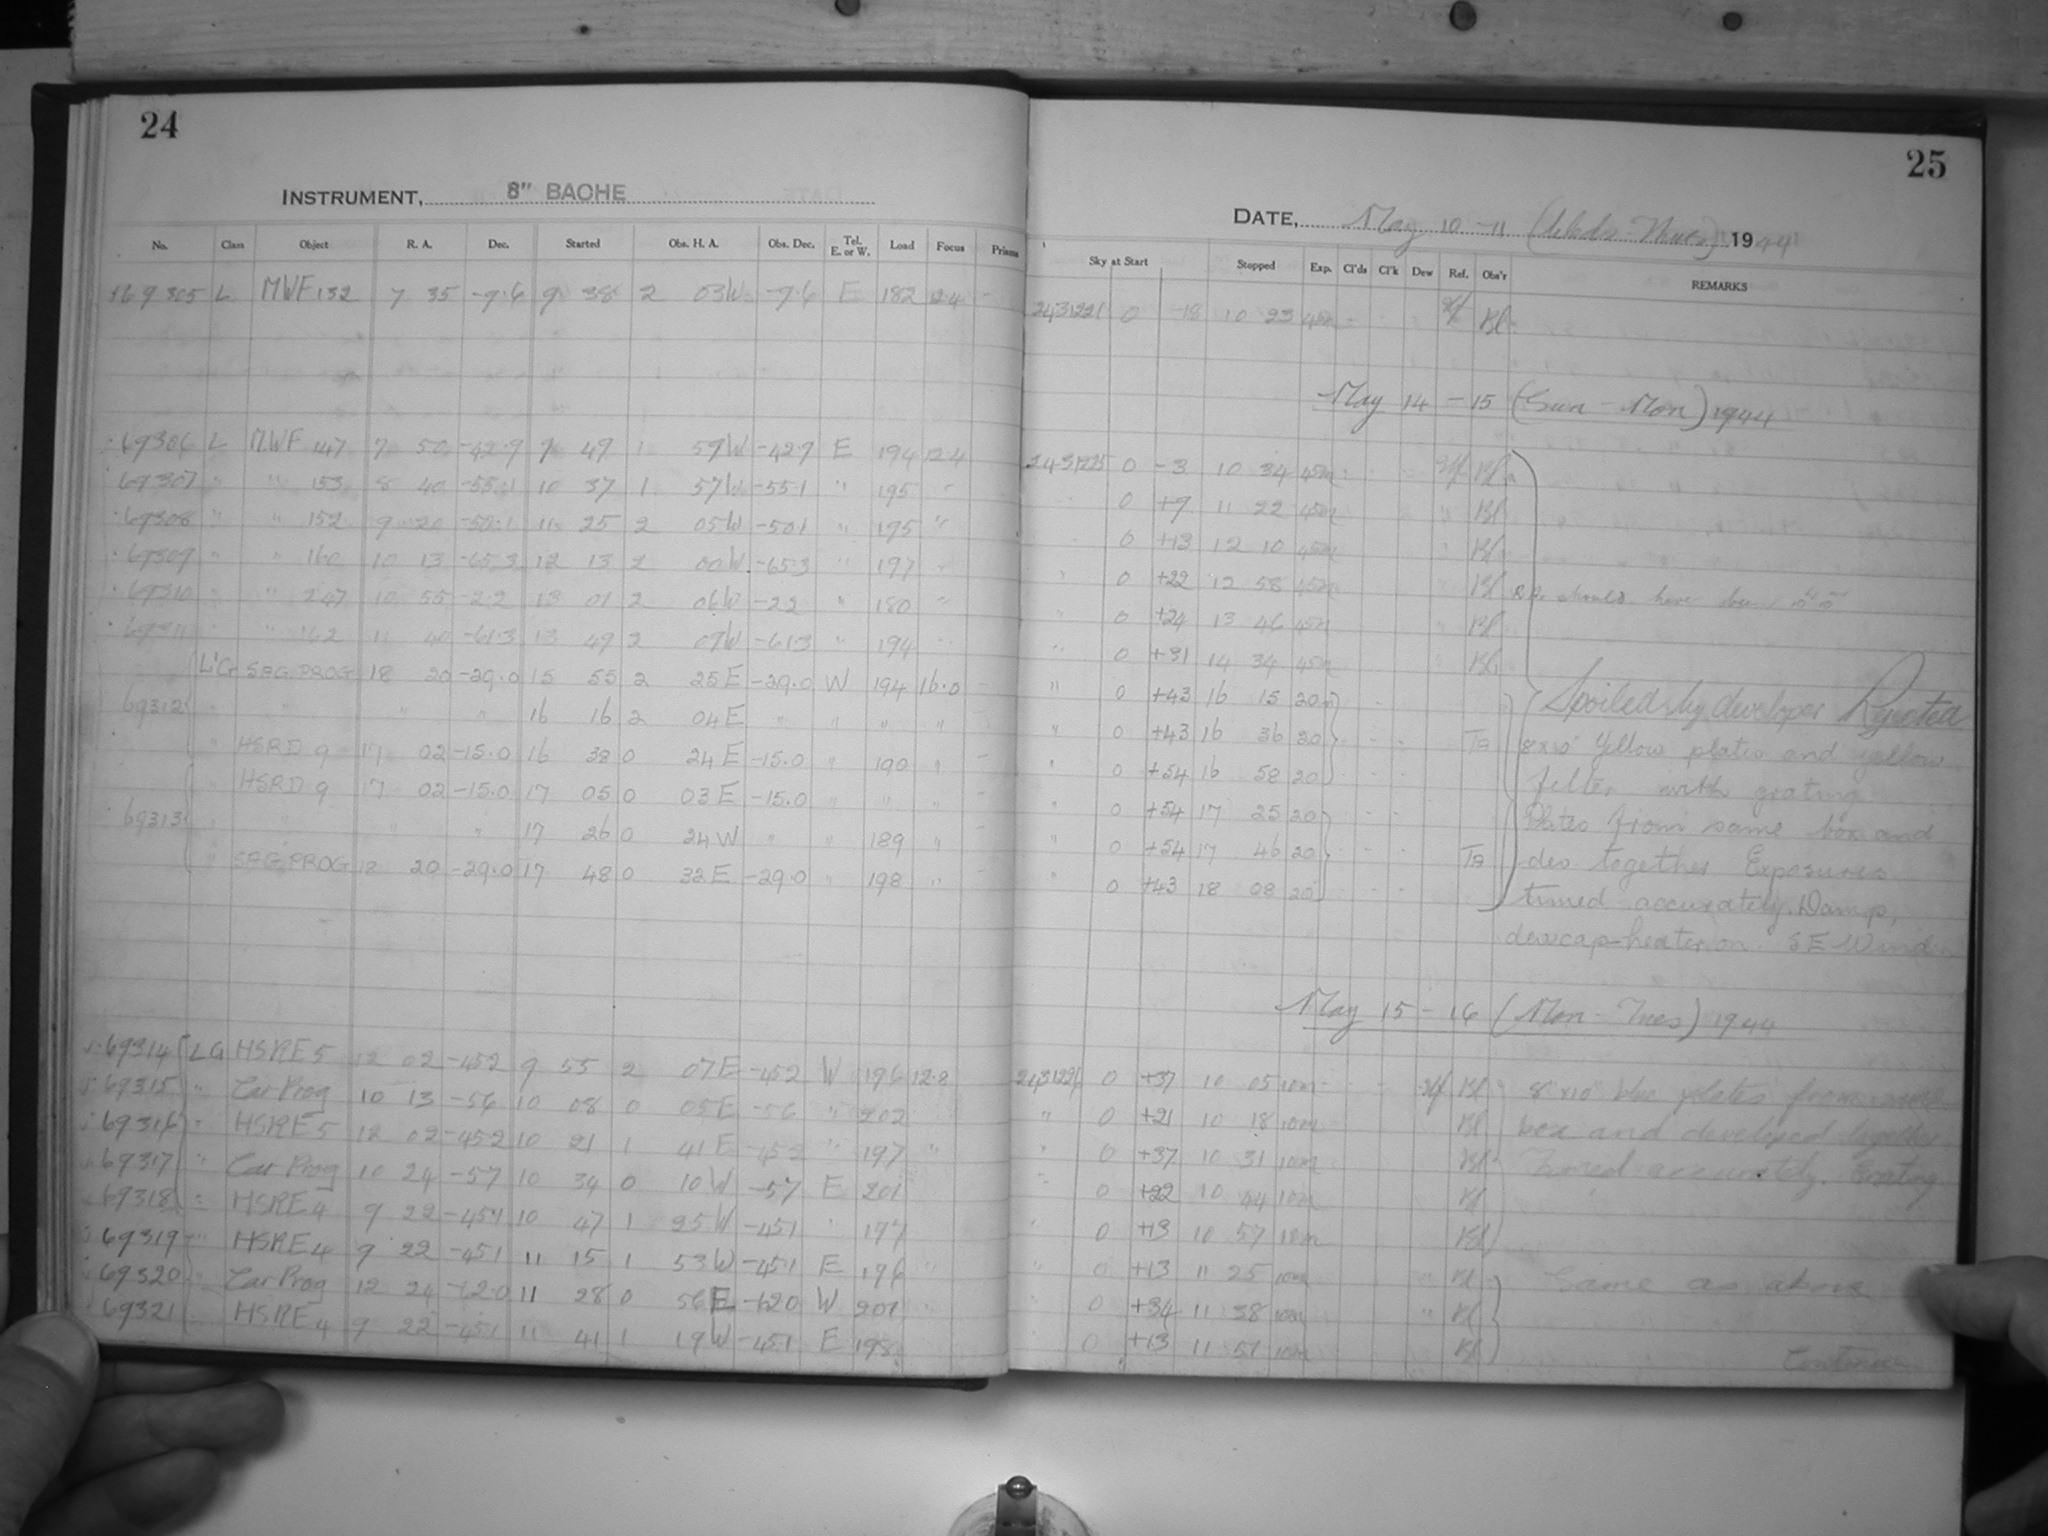 24
INSTRUMENT, 8" BACHE
No. Class Object R. A. Dec. Started Obs. H. A. Obs. Dec. Tel. E. or W. Load Focus Prisms
69305 L MWF 132 7 35 -9.6 9 38 2 03W -9.6 E 182 12.4 -
69306 L MWF 147 7 50 -42.9 9 49 1 59W -42.9 E 194 12.4
69307 " " 153 8 40 -55.1 10 37 1 57W -55.1 " 195 "
69308 " " 152 9 20 -50.1 11 25 2 05W -50.1 " 195 "
69309 " " 160 10 13 -65.3 12 13 2 00W -65.3 " 197 "
69310 " " 247 10 55 -22 13 01 2 06W -22 " 180 "
69311 " " 162 11 40 -61.3 13 49 2 09W -61.3 " 194
L'G SAG PROG 18 20 -29.0 15 55 2 25E -29.0 W 194 16.0 -
69312 " " " " 16 16 2 04E " " " "
" HSRD 9 17 02 -15.0 16 38 0 24E -15.0 " 190 " -
" HSRD 9 17 02 -15.0 17 05 0 03E -15.0 " " " -
69313 " " " " 17 26 0 24W " " 189 " -
" SAG PROG 18 20 -29.0 17 48 0 32E -29.0 " 198 " -
69314 LG HSRE5 12 02 -452 9 55 2 07E -452 W 196 12.8
69315 " Car Prog 10 13 -56 10 08 0 05E -56 " 202
69316 " HSRE5 12 02 -452 10 21 1 41E -452 " 197 "
69317 " Car Prog 10 24 -57 10 34 0 10W -57 E 201
69318 " HSRE4 9 22 -451 10 47 1 25W -451 " 197
69319 " HSRE4 9 22 -451 11 15 1 53W -451 E 196 "
69320 " Car Prog 12 24 -62.0 11 28 0 56E -620 W 201 "
69321 " HSRE4 9 22 -451 11 41 1 19W -451 E 198
25
DATE, May 10-11 (Weds-Thurs) 1944
Sky at Start Stopped Exp. Cl'ds Cl'k Dew Ref. Obs'r REMARKS
2431221 0 -18 10 23 45m - Bl
May 14-15 (Sun-Mon) 1944
2431225 0 -3 10 34 45m Bl
0 +9 11 22 45m " Bl
0 +13 12 10 45m " Bl
" 0 +22 12 58 45m " Bl R.A. should have been
" 0 +24 13 46 45m " Bl
" 0 +31 14 34 45m " Bl
" 0 +43 16 15 20 - - Spoiled by developer Rejected
" 0 +43 16 36 20 - - Ta 8x10" Yellow plates and yellow
" 0 +54 16 58 20 - - filter with grating
" 0 +54 17 25 20 - - Plates from same box and
" 0 +54 17 46 20 - - Ta dev together Exposures
" 0 +43 18 08 20 - - timed accurately. Damp,
dewcap-heater on. SE Wind.
May 15-16 (Mon-Tues) 1944
2431226 0 +37 10 05 10m - - Bl 8"x10" blue plates from same
" 0 +21 10 18 10m Bl box and developed together
" 0 +37 10 31 10m Bl Timed accurately. Grating
" 0 +22 10 44 10m Bl
" 0 +13 10 57 10m Bl
" 0 +13 11 25 10m " Bl Same as above
" 0 +34 11 38 10m " Bl
0 +13 11 51 10m Bl
Continued